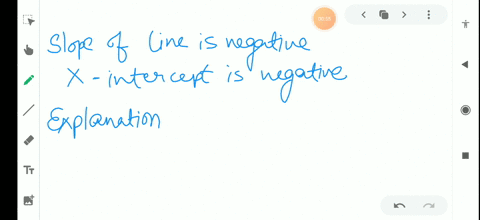 Slope of line is negative
X-intercept is negative
Explanation